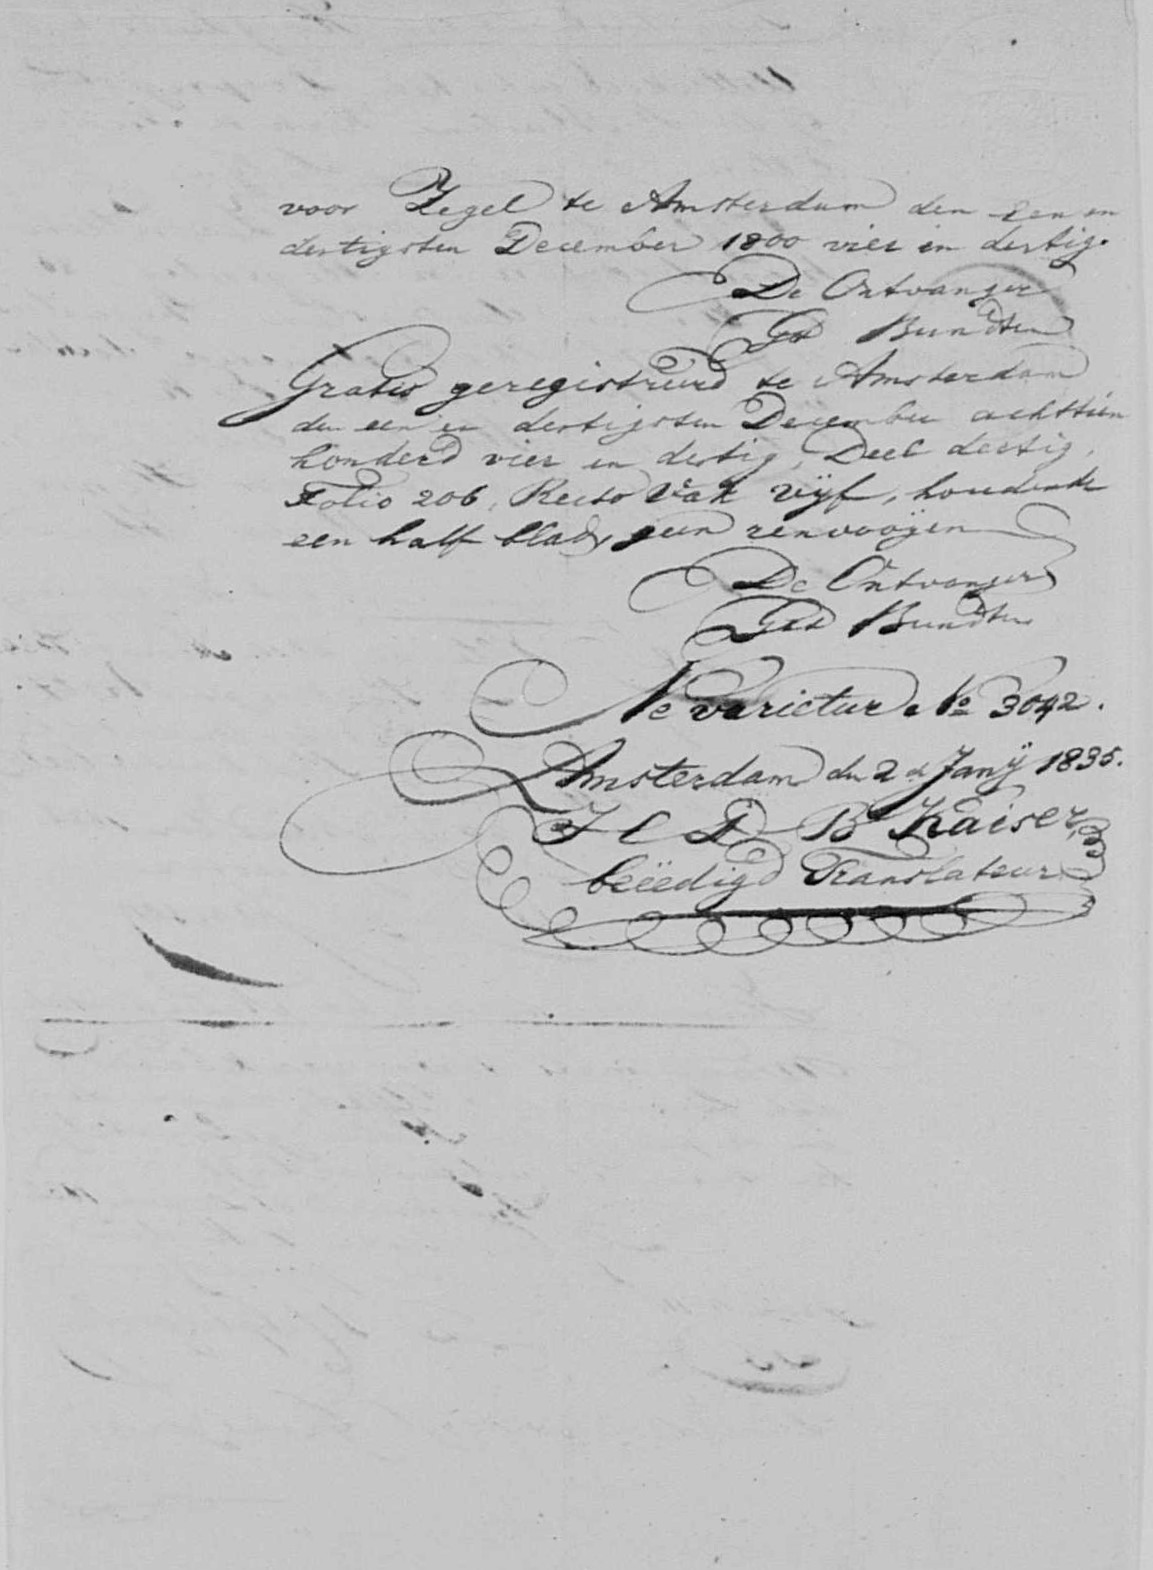 voor Zegel te Amsterdam den Een en
dertigsten December 1800 vier en dertig.
De Ontvanger
Get Bundten
Gratis geregistreerd te Amsterdam
den een en dertigsten December achttien
honderd vier en dertig, Deel dertig,
Folio 206, Recto Vak vijf, houdende
een half blad, geen renvooijen
De Ontvanger
Get Bundten
Ne varietur No 3042.
Amsterdam den 2d Janij 1835.
J C D B Kaiser,
beëedigd Translateur